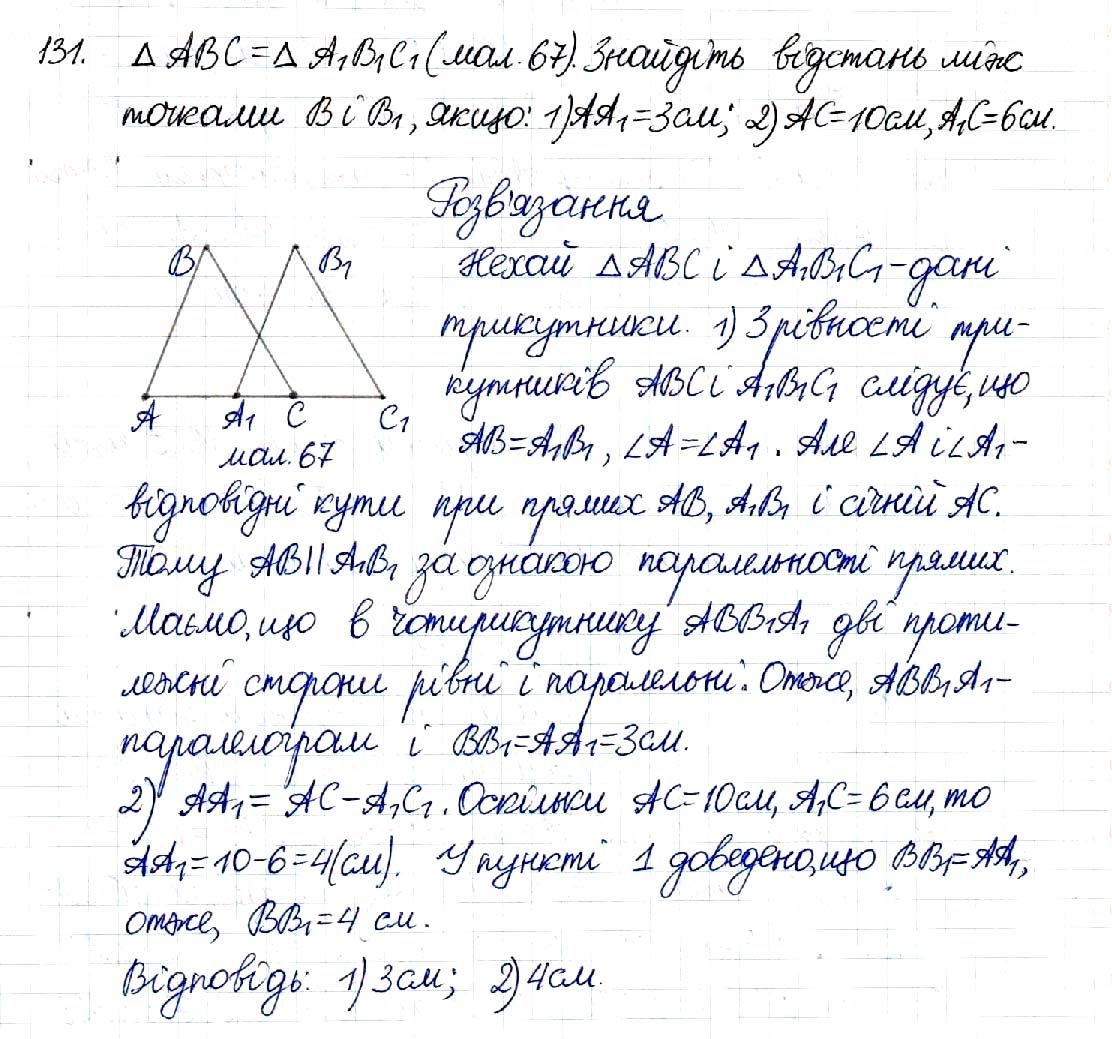 131. Δ ABC = Δ A₁B₁C₁ (мал. 67). Знайдіть відстань між
точками B і B₁, якщо: 1) AA₁=3см; 2) AC=10см, A₁C=6см.
Розв'язання
B
B₁
A
A₁
C
C₁
мал. 67
Нехай ΔABC і ΔA₁B₁C₁ – дані
трикутники. 1) З рівності три-
кутників ABC і A₁B₁C₁ слідує, що
AB=A₁B₁, ∠A=∠A₁. Але ∠A і ∠A₁ –
відповідні кути при прямих AB, A₁B₁ і січній AC.
Тому AB||A₁B₁ за ознакою паралельності прямих.
Маємо, що в чотирикутнику ABB₁A₁ дві проти-
лежні сторони рівні і паралельні. Отже, ABB₁A₁ –
паралелограм і BB₁=AA₁=3см.
2) AA₁ = AC – A₁C₁. Оскільки AC=10см, A₁C=6см, то
AA₁=10-6=4(см). У пункті 1 доведено, що BB₁=AA₁,
отже, BB₁=4 см.
Відповідь: 1) 3см; 2) 4см.